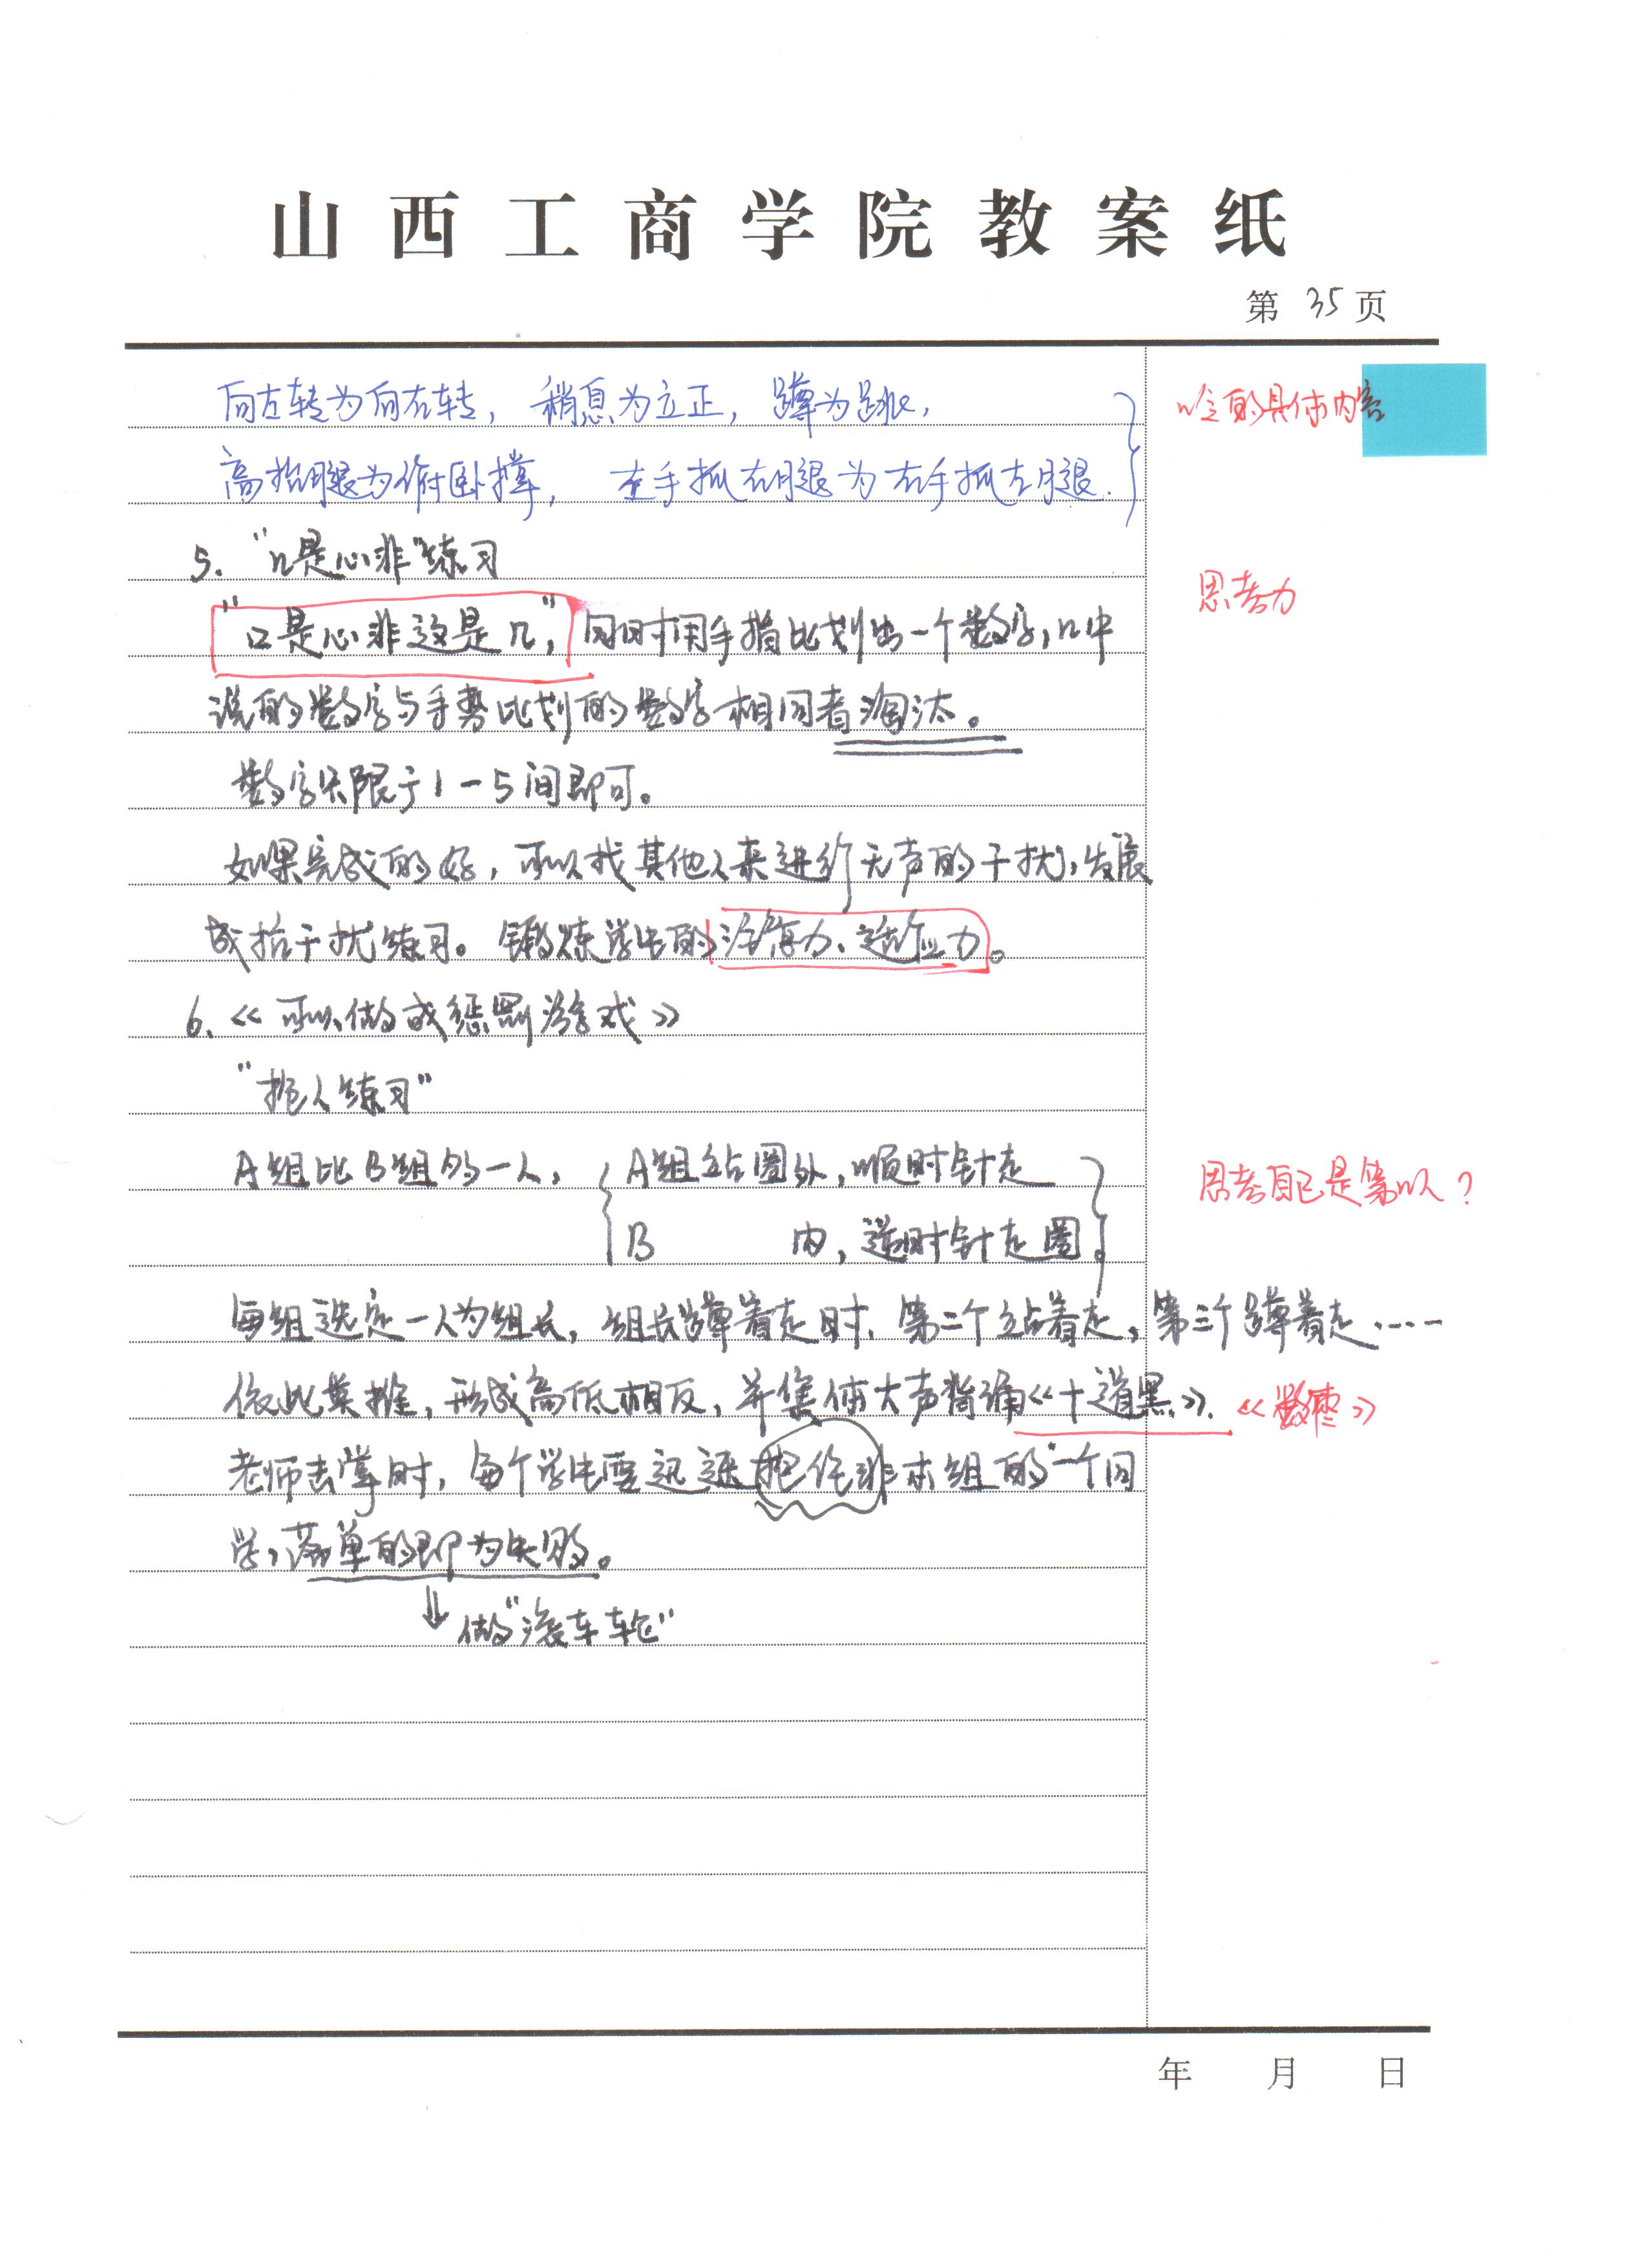 山西工商学院教案纸
第 35 页
向左转为向右转，稍息为立正，蹲为跳，
高抬腿为俯卧撑，左手抓右腿为右手抓左腿.
的具体内容
5. "口是心非"练习
思考力
"口是心非这是几"，同时用手指比划出一个数字，口中
说的数字与手势比划的数字相同者淘汰。
数字只限于1-5间即可。
如果完成的好，可以找其他人来进行无声的干扰，发展
成抗干扰练习。锻炼学生的注意力、适应力。
6.《可以做成惩罚游戏》
"抱人练习"
A组比B组多一人，A组站圈外，顺时针走
B 内，逆时针走圈。
思考自己是第几人？
每组选定一人为组长，组长蹲着走时，第二个站着走，第三个蹲着走……
依此类推，形成高低相反，并集体大声背诵《十道黑》.《数枣》
老师击掌时，每个学生要迅速抱住非本组的一个同
学，落单的即为失败。
↓ 做"滚车轮"
年 月 日